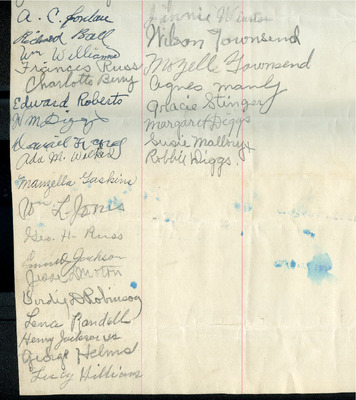 A. C. Jordan
Richard Ball
Wm Williams
Frances Russ
Charlotte Berry
Edward Roberts
H. M. Diggs
Ada M. Wilkes
Manzella Gaskins
Wm L. Jones
Geo. H. Russ
Jackson
Jesse Molton
Birdie D Robinson
Lena Randell
Henry Jackson
George Helms
Lucy Williams
Fannie Winston
Wilson Townsend
Mozelle Townsend
Agnes Manly
Gracie Stinger
Margaret Diggs
Susie Mallory
Robbie Diggs.